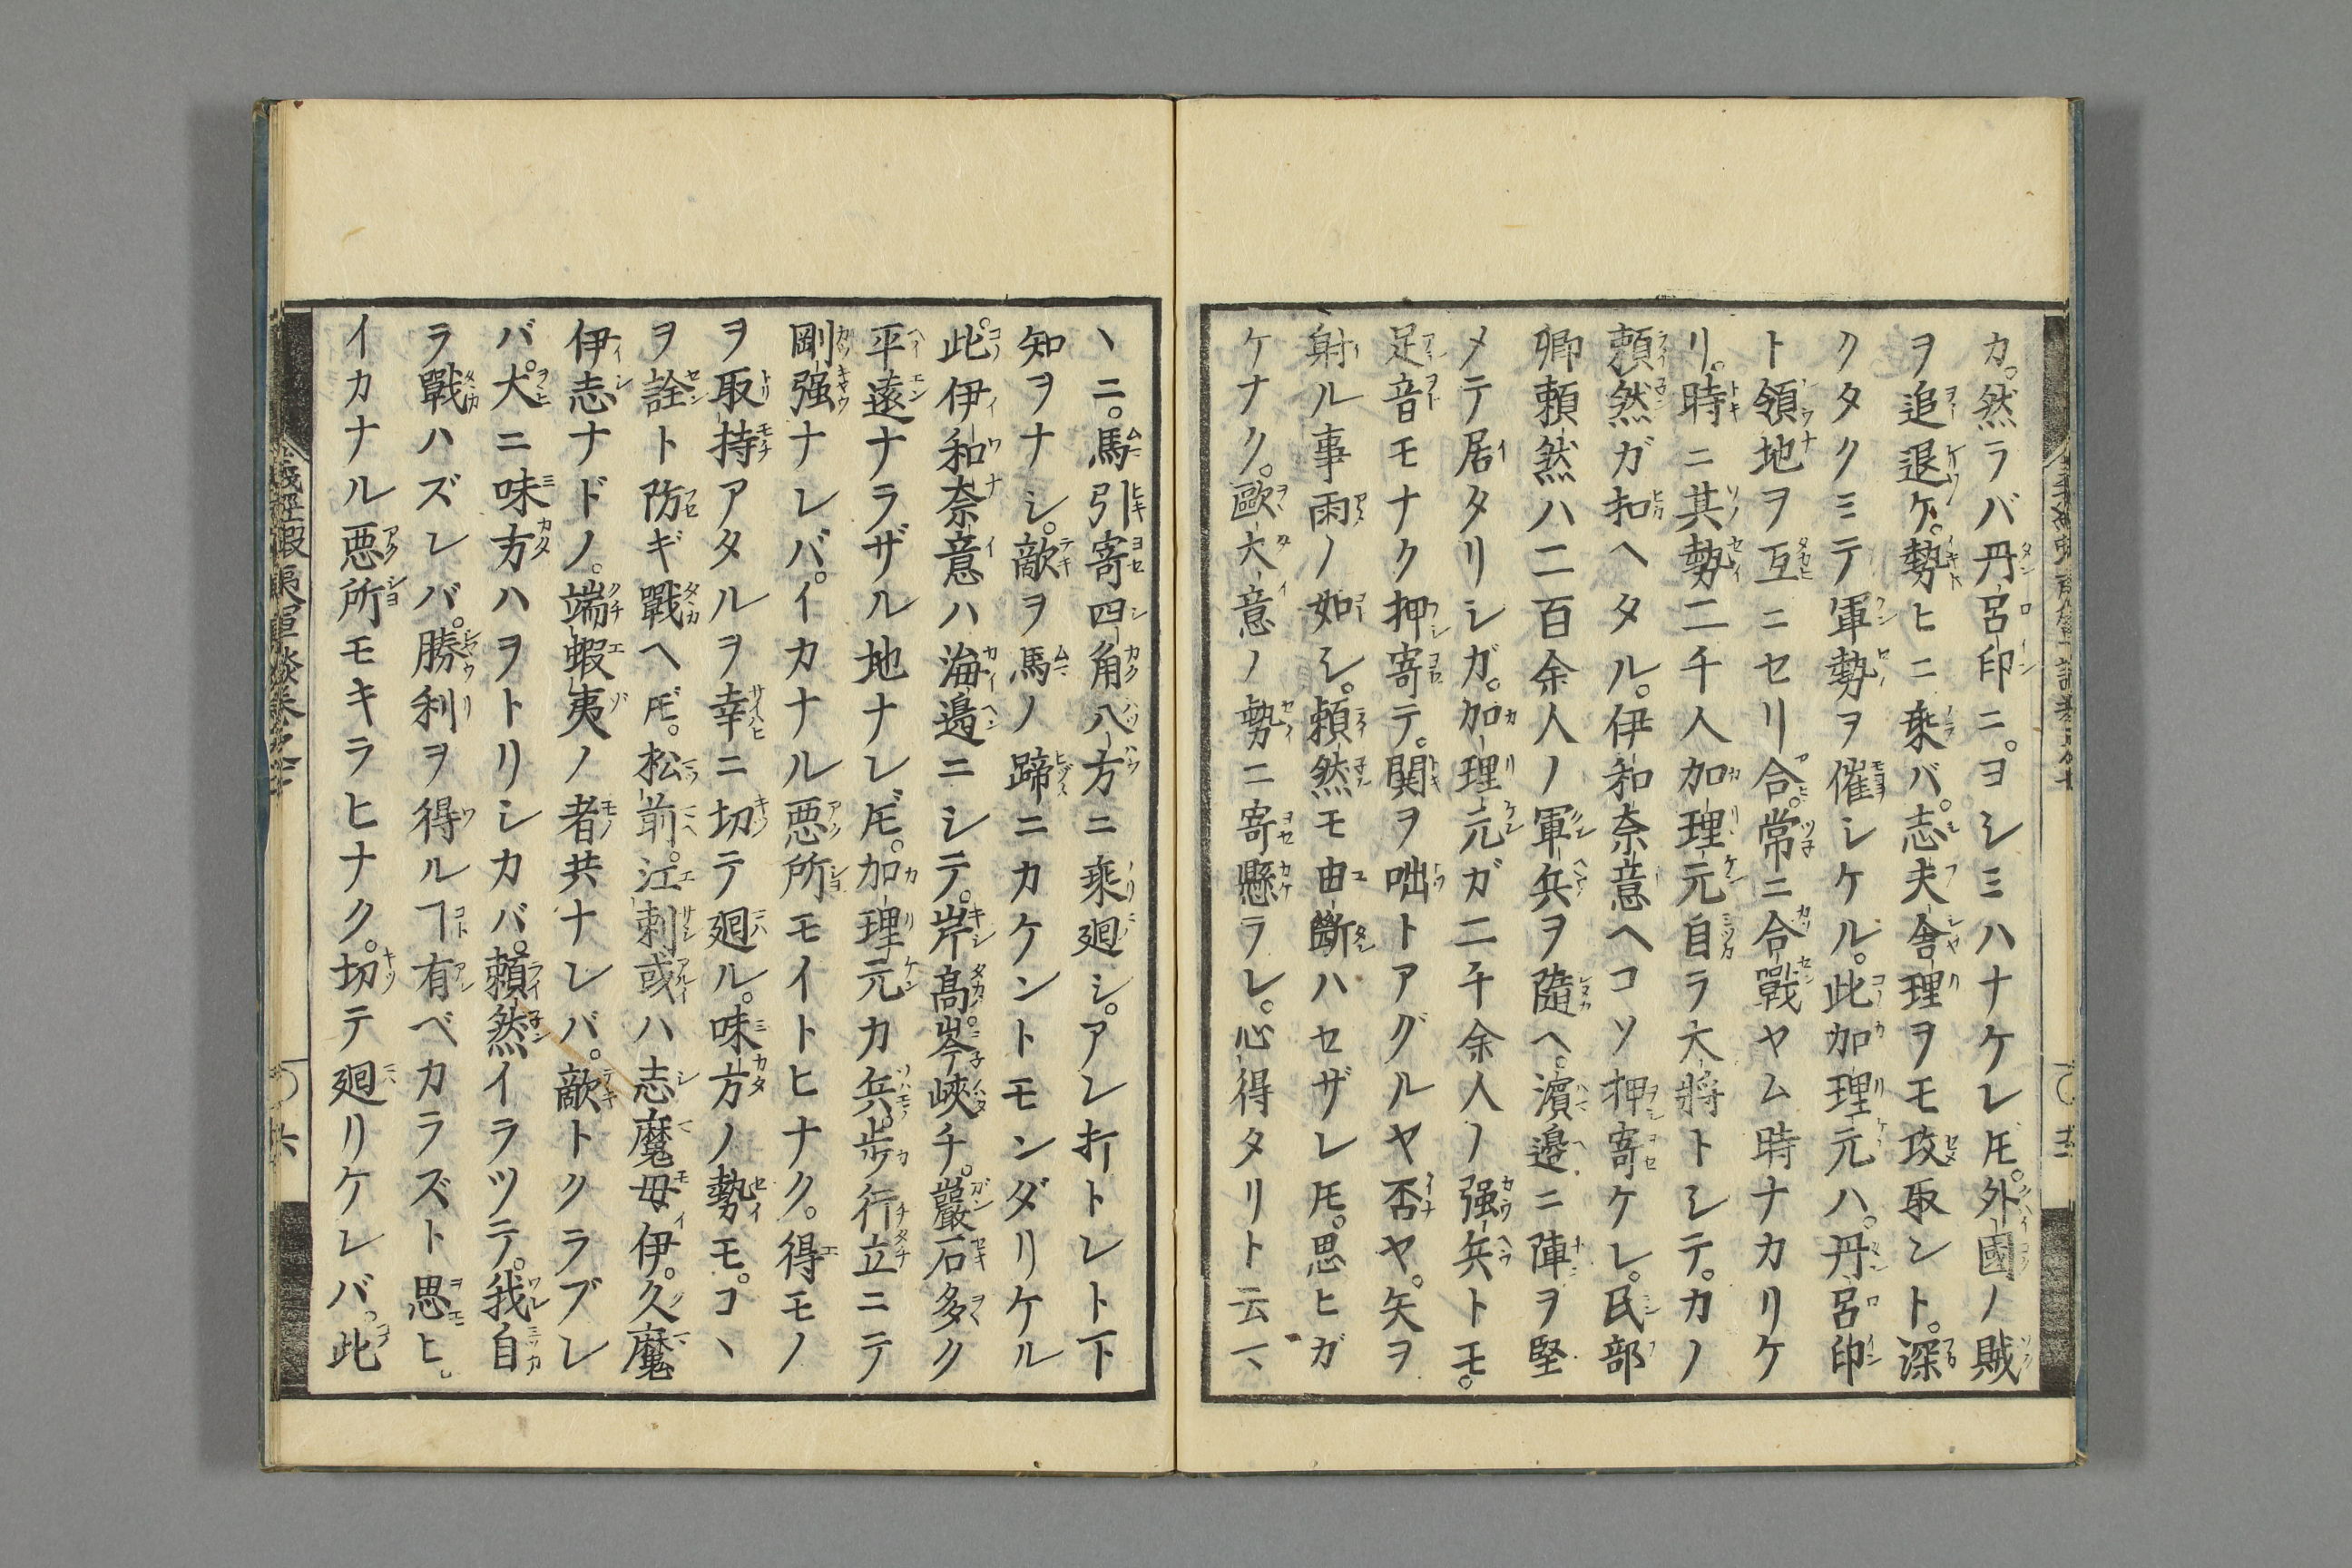 カ。然ラバ丹呂印ニ。ヨシミハナケレ𪜈。外國ノ賊
ヲ追退ケ。勢ヒニ乗バ。志夫舎理ヲモ攻取ント。深
クタクミテ軍勢ヲ催シケル。此加理元ハ。丹呂印
ト領地ヲ互ニセリ合。常ニ合戰ヤム時ナカリケ
リ。時ニ其勢二千人加理元自ラ大將トシテ。カノ
頼然ガ扣ヘタル。伊和奈意ヘコソ押寄ケレ。民部
卿頼然ハ二百余人ノ軍兵ヲ隨ヘ。濱邉ニ陣ヲ堅
メテ居タリシガ。加理元ガ二千余人ノ强兵トモ。
足音モナク押寄テ。鬨ヲ咄トアグルヤ否ヤ。矢ヲ
射ル事雨ノ如シ。頼然モ由斷ハセザレ𪜈。思ヒガ
ケナク。歐大意ノ勢ニ寄懸ラレ。心得タリト云
ヽニ。馬引寄四角八方ニ乗廻シ。アレ打トレト下
知ヲナシ。敵ヲ馬ノ蹄ニカケントモンダリケル
此。伊和奈意ハ海邉ニシテ。岸髙。岑峽チ。巖石多ク
平遠ナラザル地ナレ𪜈。加理元カ兵。歩行立ニテ
剛强ナレバ。イカナル悪所モイトヒナク。得モノ
ヲ取持アタルヲ幸ニ切テ廻ル。味方ノ勢モ。コヽ
ヲ詮ト防ギ戰ヘ𪜈。松前。江刺或ハ志魔母伊。久魔
伊志ナドノ。端蝦夷ノ者共ナレバ。敵トクラブレ
バ。大ニ味方ハヲトリシカバ。頼然イラツテ。我自
ラ戰ハズレバ。勝利ヲ得ルヿ有ベカラズト思ヒ。
イカナル悪所モキラヒナク。切テ廻リケレバ。此
義經蝦夷軍談巻之
六